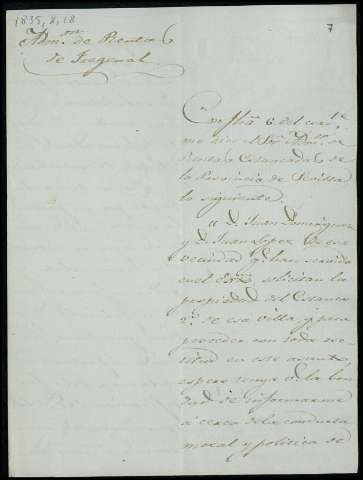 1835, 8, 18
7
Admon de Rentas
de Fregenal
Con fha 6 del corrte
me dice el Sor Admor de
Rentas Estancadas de
la Provincia de Sevilla
lo siguiente
" D. Juan Dominguez
y D. Juan Lopez de esa
vecindad q. han servido
en el solicitan la
propiedad del Estanco
2º de esa villa, y para
proceder con toda rec-
titud en este asunto
espero tenga V. la bon-
dad de informarme
a cerca de la conducta
moral y politica de